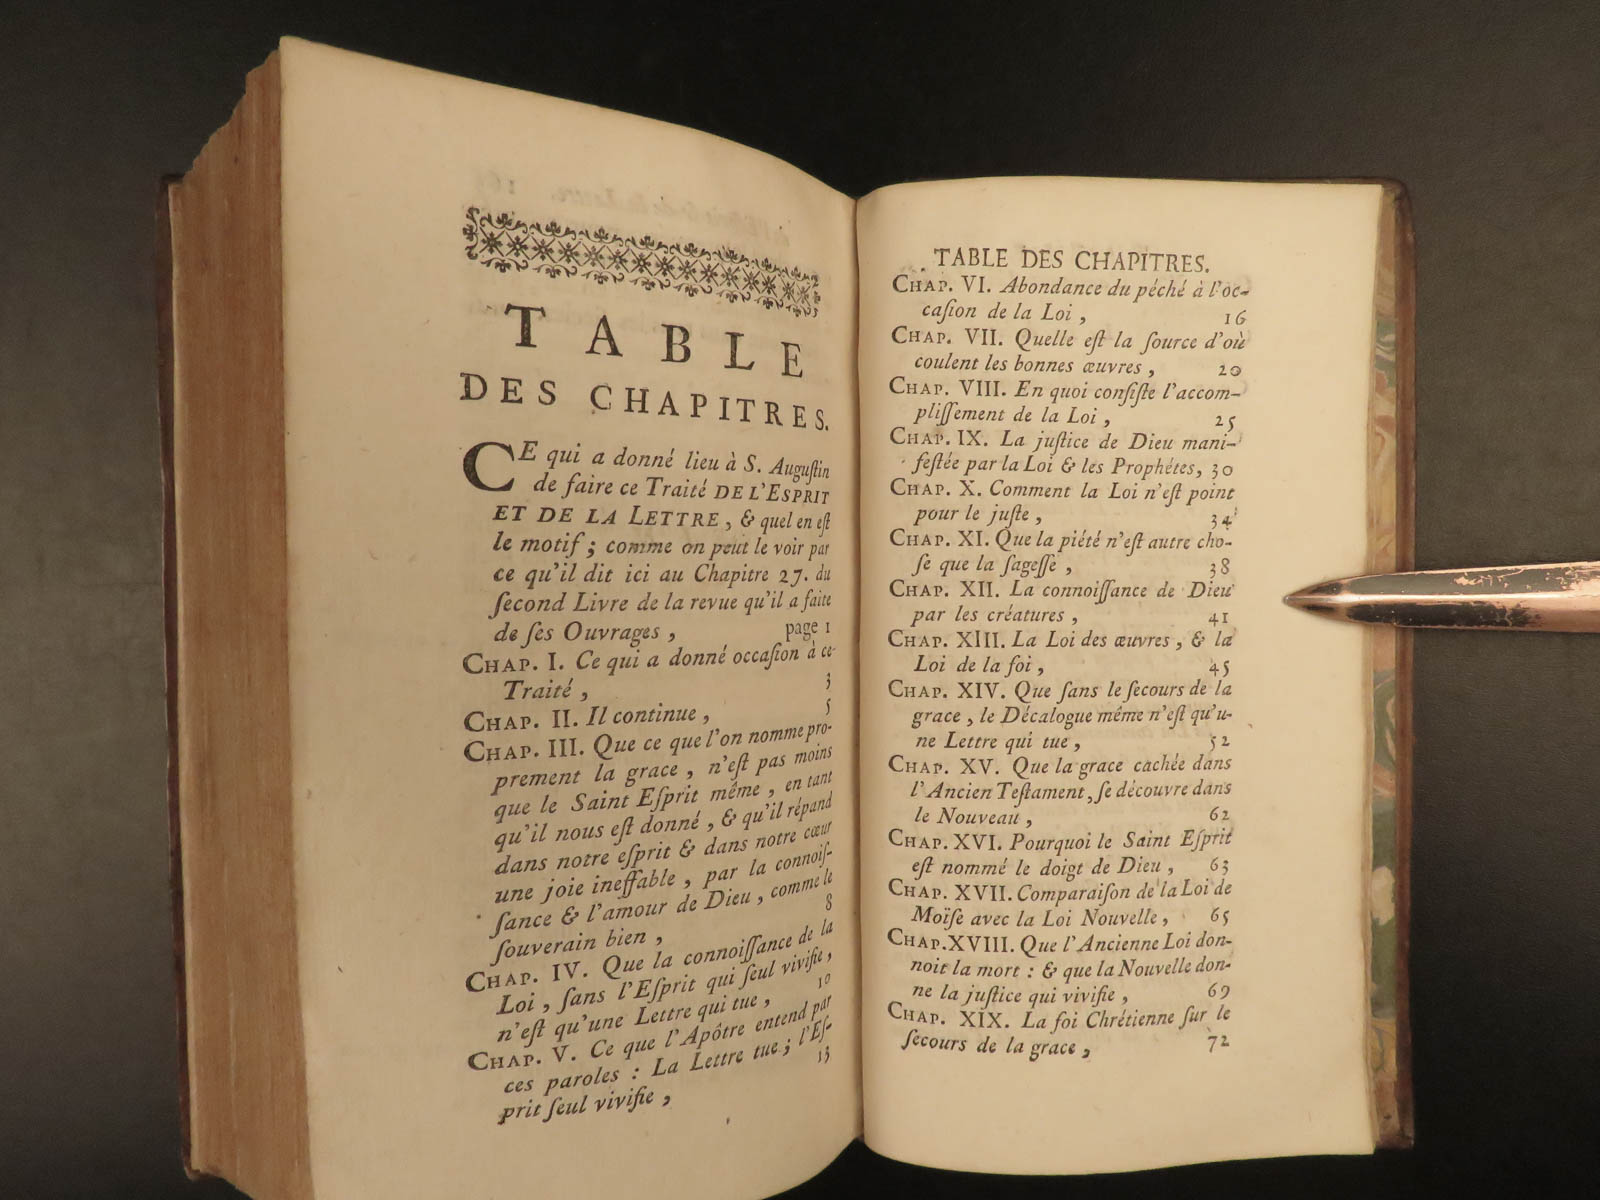 TABLE
DES CHAPITRES.
CE qui a donné lieu à S. Auguſtin
de faire ce Traité DE L'ESPRIT
ET DE LA LETTRE, & quel en eſt
le motif; comme on peut le voir par
ce qu'il dit ici au Chapitre 27. du
ſecond Livre de la revue qu'il a faite
de ſes Ouvrages, page 1
CHAP. I. Ce qui a donné occaſion à ce
Traité, 3
CHAP. II. Il continue, 5
CHAP. III. Que ce que l'on nomme pro-
prement la grace, n'eſt pas moins
que le Saint Eſprit même, en tant
qu'il nous eſt donné, & qu'il répand
dans notre eſprit & dans notre cœur
une joie ineffable, par la connoiſ-
ſance & l'amour de Dieu, comme le
ſouverain bien, 8
CHAP. IV. Que la connoiſſance de la
Loi, ſans l'Eſprit qui ſeul vivifie,
n'eſt qu'une Lettre qui tue, 10
CHAP. V. Ce que l'Apôtre entend par
ces paroles : La Lettre tue; l'Eſ-
prit ſeul vivifie, 13
TABLE DES CHAPITRES.
CHAP. VI. Abondance du péché à l'oc-
caſion de la Loi, 16
CHAP. VII. Quelle eſt la ſource d'où
coulent les bonnes œuvres, 20
CHAP. VIII. En quoi conſiſte l'accom-
pliſſement de la Loi, 25
CHAP. IX. La juſtice de Dieu mani-
feſtée par la Loi & les Prophétes, 30
CHAP. X. Comment la Loi n'eſt point
pour le juſte, 34
CHAP. XI. Que la piété n'eſt autre cho-
ſe que la ſageſſe, 38
CHAP. XII. La connoiſſance de Dieu
par les créatures, 41
CHAP. XIII. La Loi des œuvres, & la
Loi de la foi, 45
CHAP. XIV. Que ſans le ſecours de la
grace, le Décalogue même n'eſt qu'u-
ne Lettre qui tue, 52
CHAP. XV. Que la grace cachée dans
l'Ancien Teſtament, ſe découvre dans
le Nouveau, 62
CHAP. XVI. Pourquoi le Saint Eſprit
eſt nommé le doigt de Dieu, 63
CHAP. XVII. Comparaiſon de la Loi de
Moïſe avec la Loi Nouvelle, 65
CHAP. XVIII. Que l'Ancienne Loi don-
noit la mort : & que la Nouvelle don-
ne la juſtice qui vivifie, 69
CHAP. XIX. La foi Chrétienne ſur le
ſecours de la grace, 72